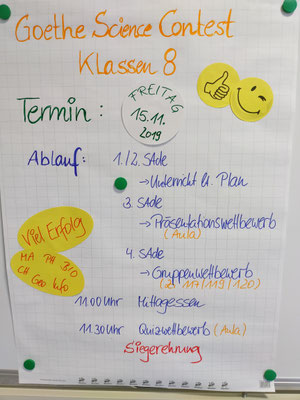 Goethe Science Contest
Klassen 8
Termin:
FREITAG
15.11.
2019
Ablauf:
1./2. Stde
→Unterricht lt. Plan
3. Stde
→Präsentationswettbewerb
(Aula)
Viel Erfolg
MA PH BIO
CH Geo Info
4. Stde
→Gruppenwettbewerb
(R. 117/119/120)
11.00 Uhr Mittagessen
11.30 Uhr Quizwettbewerb (Aula)
Siegerehrung